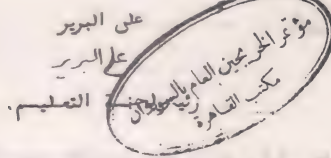 على البرير
على البرير
رئيس لجنة التعليم.
مؤتمر الخريجين العام بالسودان
مكتب القاهرة